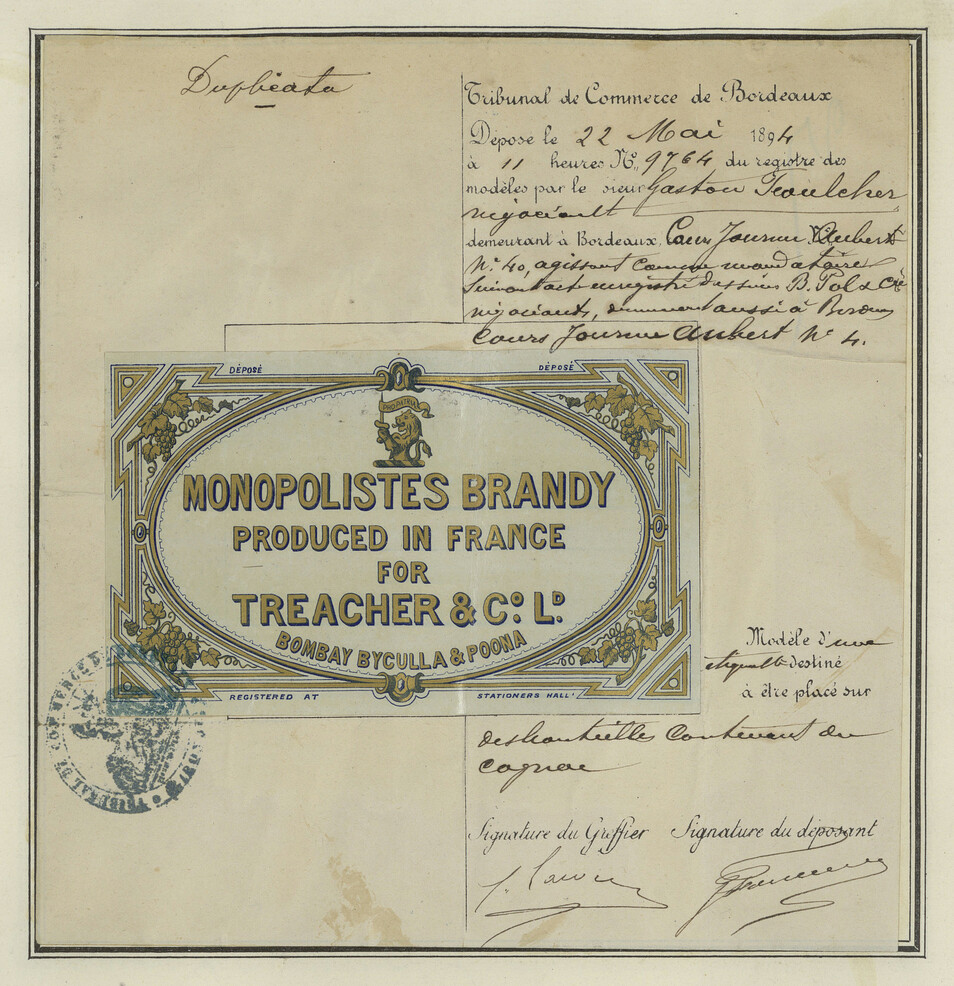 Duplicata
Tribunal de Commerce de Bordeaux
Déposé le 22 Mai 1894
à 11 heures No. 9764 du registre des
modèles par le sieur Gaston
négociant
demeurant à Bordeaux, Cours Journu Aubert
No. 40, agissant comme mandataire
suivant acte enregistré des sieurs B. & Cie
négociants, demeurant aussi à Bordeaux
Cours Journu Aubert No 4.
DÉPOSÉ DÉPOSÉ
PRO PATRIA
MONOPOLISTES BRANDY
PRODUCED IN FRANCE
FOR
TREACHER & Co. LD.
BOMBAY BYCULLA & POONA
REGISTERED AT STATIONERS HALL
Modèle d'une
étiquette destiné
à être placé sur
des bouteilles contenant du
cognac
TRIBUNAL DE COMMERCE DE BORDEAUX
Signature du Greffier Signature du déposant